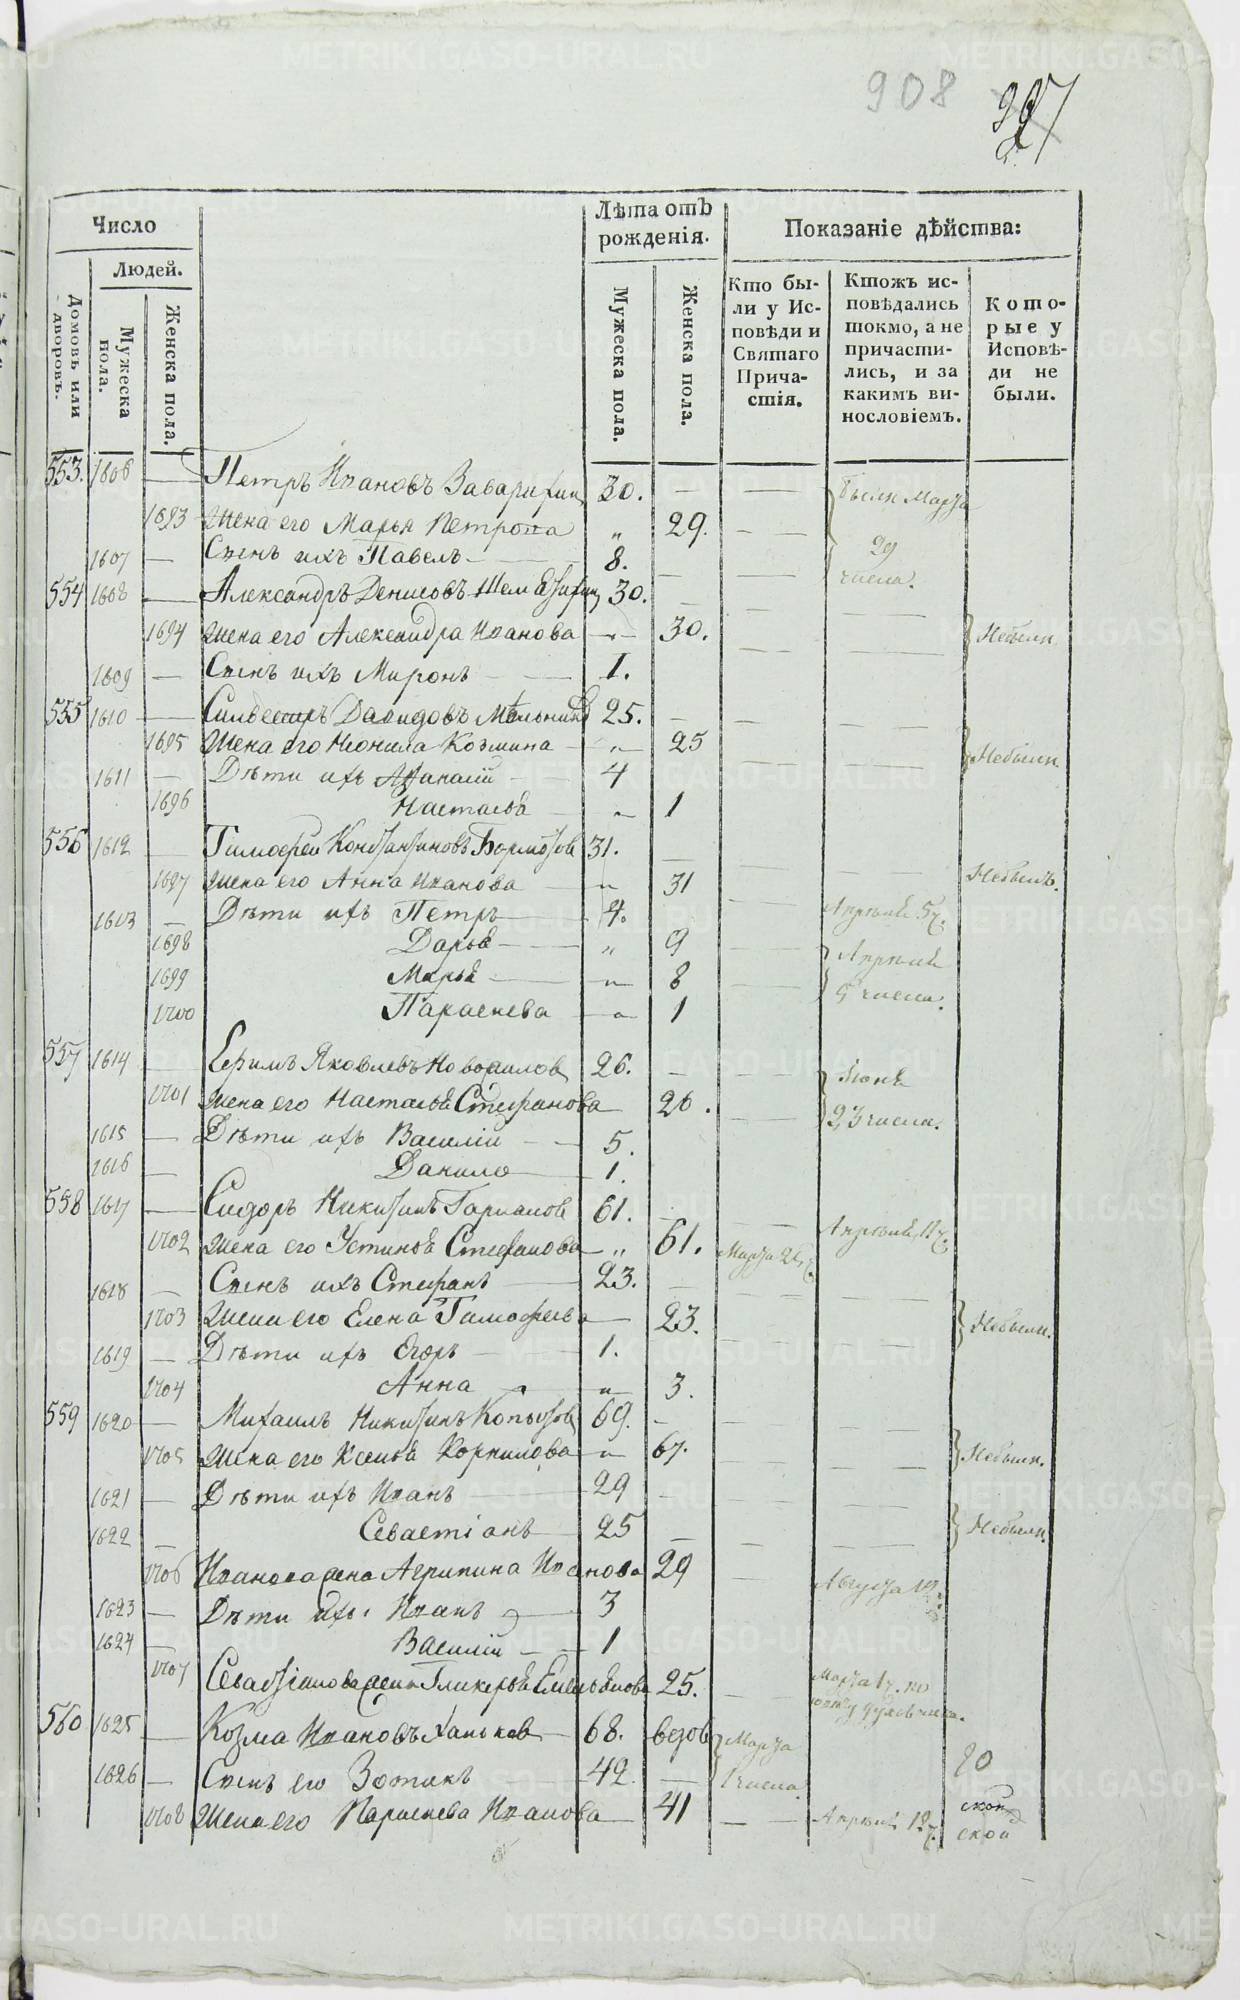 908
Число
Людей.
Домовъ или дворовъ.
Мужеска пола.
Женска пола.
Лѣта отъ рожденія.
Мужеска пола.
Женска пола.
Показаніе дѣйства:
Кто бы-
ли у Ис-
повѣди и
Святаго
Прича-
стія.
Ктожъ ис-
повѣдались
токмо, а не
причасти-
лись, и за
какимъ ви-
нословіемъ.
Кото-
рые у
Исповѣ-
ди не
были.
553. 1606 — Петръ Ивановъ 30. — — были Марта
1693 Жена его Марья Петрова „ 29. — — 29
1607 — Сынъ ихъ Павелъ 8. — — числа.
554 1608 — Александръ Денисовъ 30. — — —
1694 Жена его Александра Иванова — 30. — — Небыли
1609 — Сынъ ихъ Миронъ — 1.
555 1610 — Сильвестръ Давидовъ Мѣльниковъ 25. — — —
1695 Жена его Неонила Козмина „ 25 — — Небыли.
1611 — Дѣти ихъ Афанасій — 4
1696 Настасья — „ 1
556 1612 — Тимофей Константиновъ Бормотовъ 31. — — — Небылъ.
1697 Жена его Анна Иванова „ 31 — Апрѣля 5 ч.
1613 — Дѣти ихъ Петръ 4.
1698 Дарья — „ 9 — Апрѣля
1699 Марья — „ 8 — 5 числа.
1700 Параскева „ 1
557 1614 — Ефимъ Яковлевъ Новоселовъ 26. — — — Іюня
1701 Жена его Настасья Стефанова 26. — 23 числа.
1615 — Дѣти ихъ Василій — 5.
1616 — Данило 1.
558 1617 — Сидоръ Никитинъ 61. — — Апрѣля 11 ч.
1702 Жена его Устинья Стефанова „ 61. Марта 26 ч.
1618 — Сынъ ихъ Стефанъ 23. — — —
1703 Жена его Елена Тимофеева — 23. — — Небыли.
1619 — Дѣти ихъ Егоръ — 1.
1704 Анна „ 3.
559 1620 — Михаилъ Никитинъ Копытовъ 69. — — —
1705 Жена его Ксенья Корнилова „ 67. — — Небыли.
1621 — Дѣти ихъ Иванъ 29 — — —
1622 — Севастіанъ 25 — — — Небыли.
1706 Иванова жена Агрипина Иванова 29 — Августа
1623 — Дѣти ихъ Иванъ 3
1624 — Василій — 1
1707 Севастіанова жена Гликерья Емельянова 25. — Марта 1 ч. по
560 1625 — Козма Ивановъ Ханьковъ 68. вдовъ Марта
1626 — Сынъ его Зотикъ 42. — 1 числа. 20
1708 Жена его Параскева Иванова 41 — Апрѣля 12 ч.
ской
METRIKI.GASO-URAL.RU